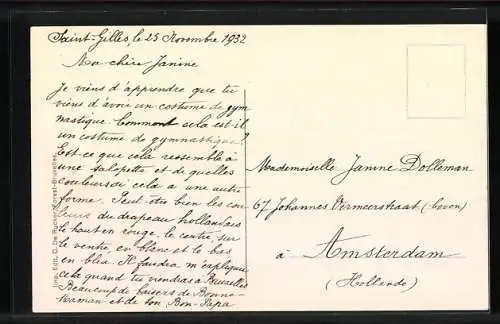 Saint-Gilles, le 25 Novembre 1932
Ma chère Janine
Je viens d'apprendre que tu
viens d'avoir un costume de gym
nastique. Comment cela est-il
un costume de gymnastique?
Est-ce que cela ressemble à
une salopette et de quelles
couleurs où cela a une autre
forme. Peut-être bien les cou
leurs du drapeau hollandais
le haut en rouge, le centre, sur
le ventre en blanc et le bas
en bleu. Il faudra m'expliquer
cela quand tu viendras à Bruxelles
Beaucoup de baisers de Bonne-
Maman et de ton Bon-Papa
Mademoiselle Janine Dolleman
67 Johannes Vermeerstraat (boven)
à Amsterdam
(Hollande)
Edit. G. De Rycker, Forest-Bruxelles